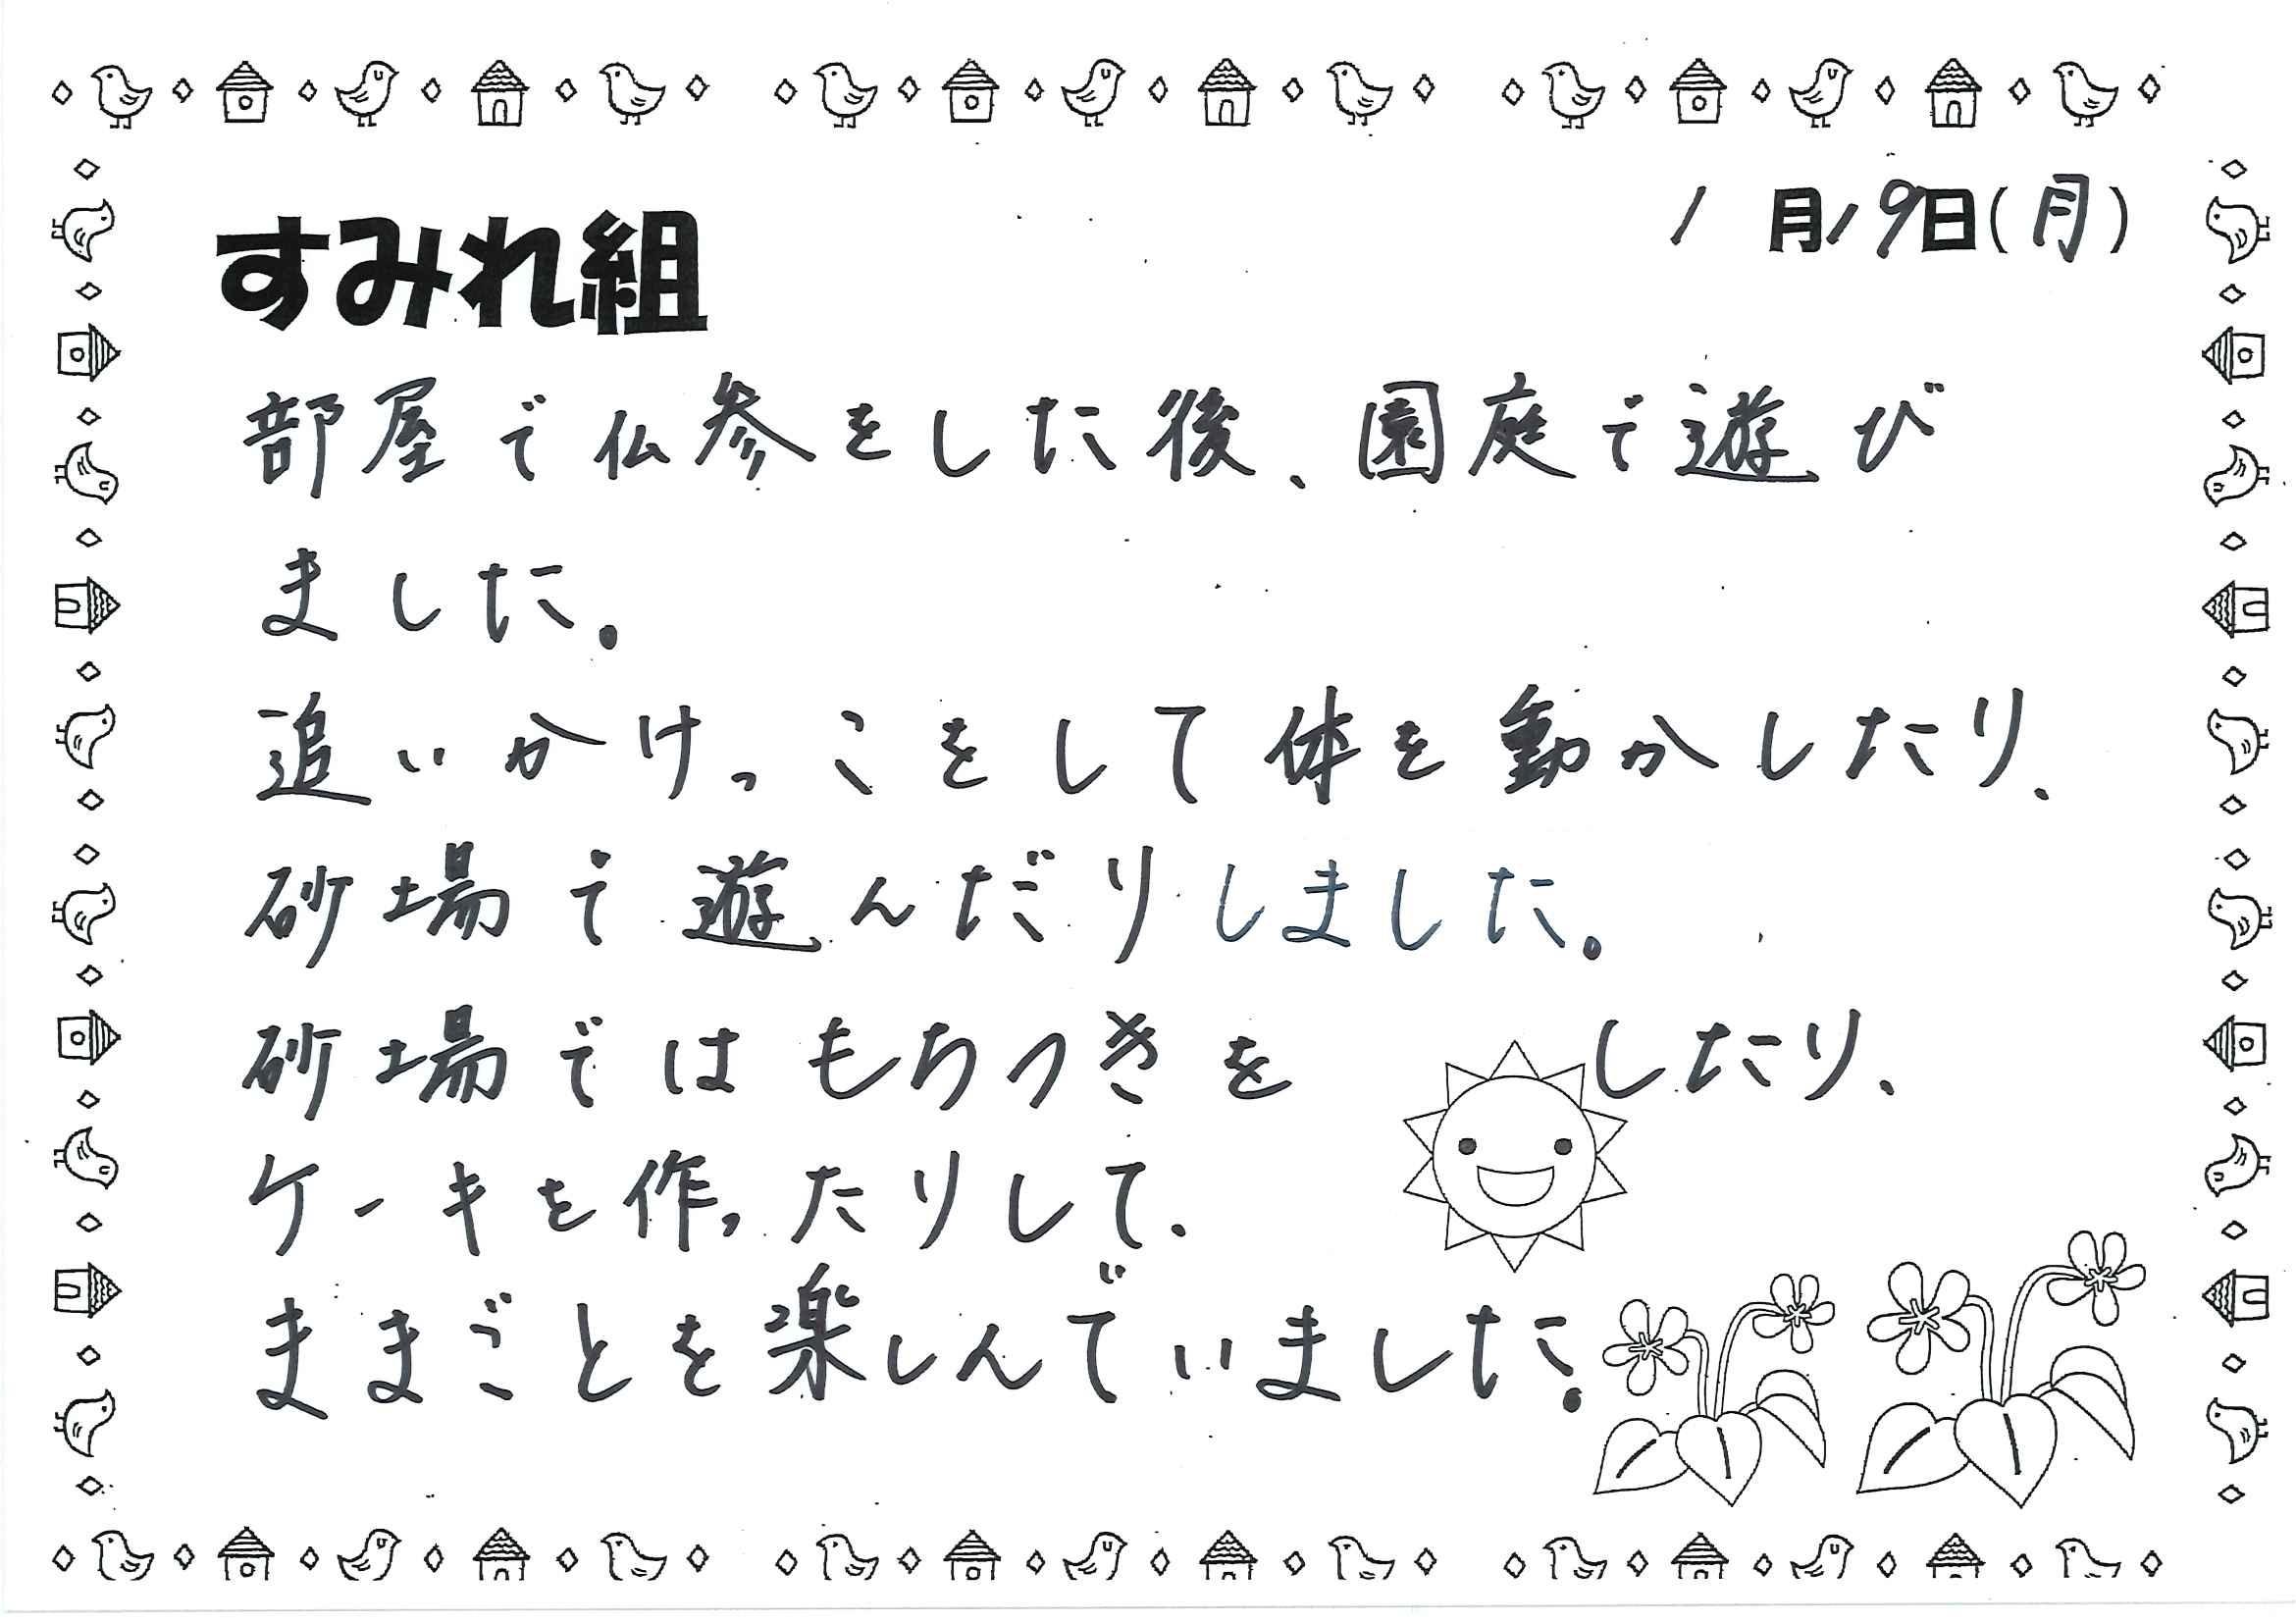 1月19日(月)
すみれ組
部屋で仏参をした後、園庭で遊び
ました。
追いかけっこをして体を動かしたり、
砂場で遊んだりしました。
砂場ではもちつきをしたり、
ケーキを作ったりして、
ままごとを楽しんでいました。